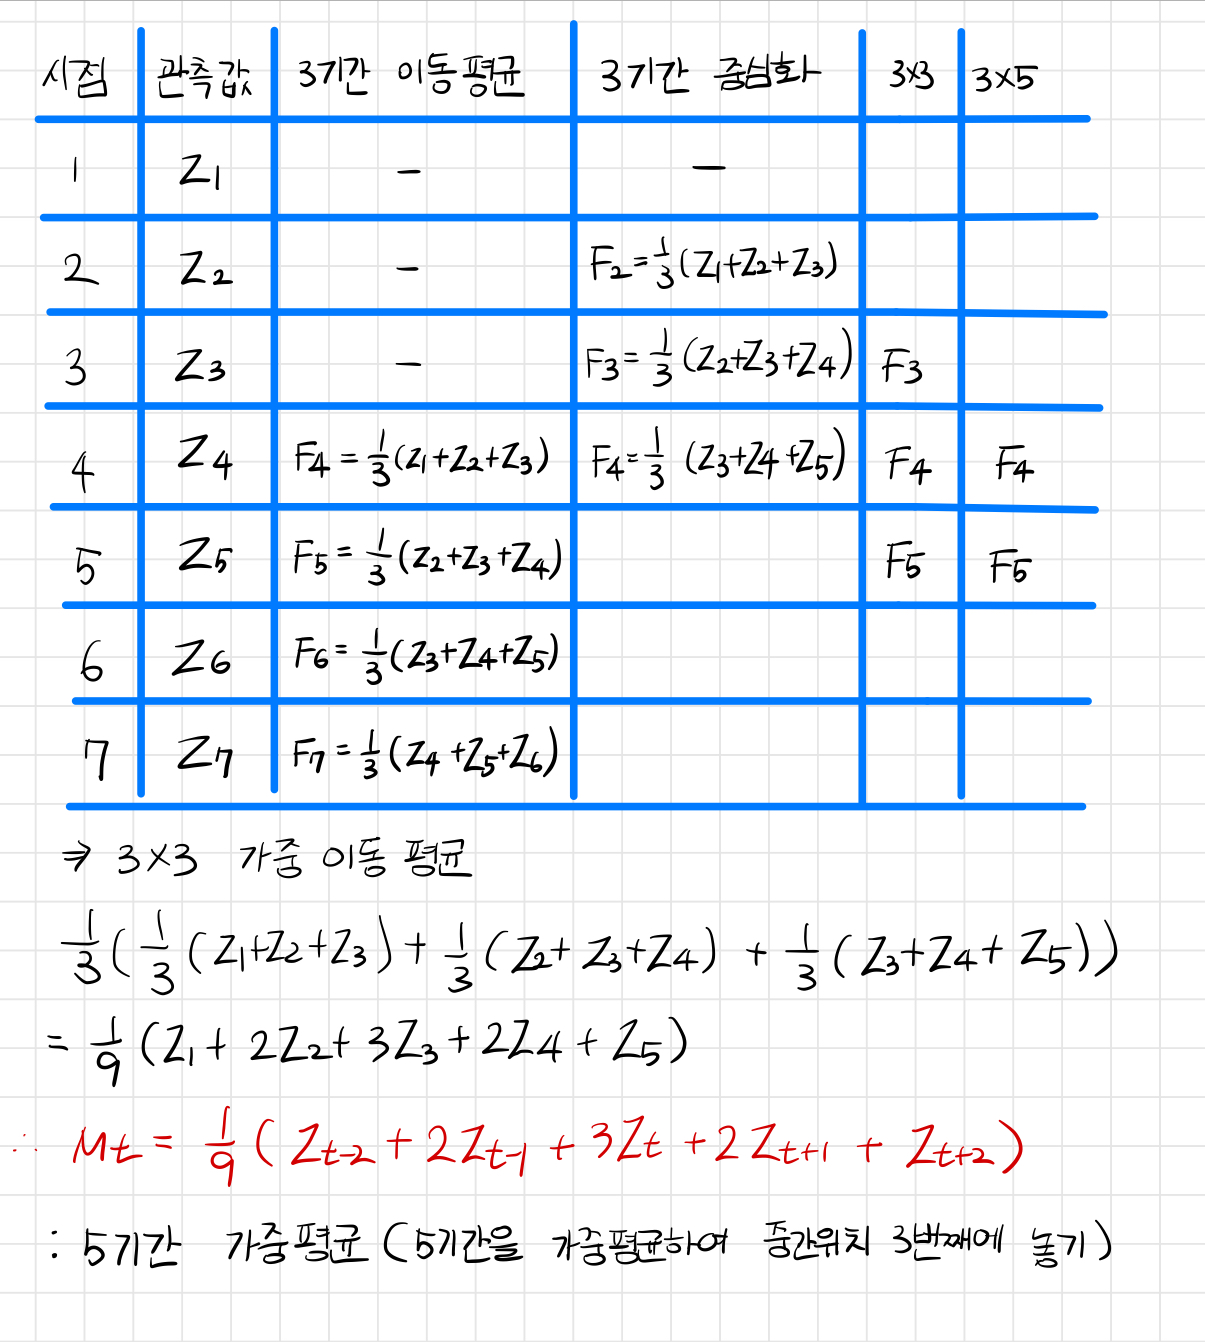 시점 관측값 3기간 이동평균 3기간 중심화 3×3 3×5
1 Z₁ - -
2 Z₂ - F₂=1/3(Z₁+Z₂+Z₃)
3 Z₃ - F₃=1/3(Z₂+Z₃+Z₄) F₃
4 Z₄ F₄=1/3(Z₁+Z₂+Z₃) F₄=1/3(Z₃+Z₄+Z₅) F₄ F₄
5 Z₅ F₅=1/3(Z₂+Z₃+Z₄) F₅ F₅
6 Z₆ F₆=1/3(Z₃+Z₄+Z₅)
7 Z₇ F₇=1/3(Z₄+Z₅+Z₆)
⇒ 3×3 가중 이동 평균
1/3(1/3(Z₁+Z₂+Z₃)+1/3(Z₂+Z₃+Z₄)+1/3(Z₃+Z₄+Z₅))
=1/9(Z₁+2Z₂+3Z₃+2Z₄+Z₅)
∴ Mt=1/9(Zt-2+2Zt-1+3Zt+2Zt+1+Zt+2)
: 5기간 가중평균(5기간을 가중평균하여 중간위치 3번째에 놓기)